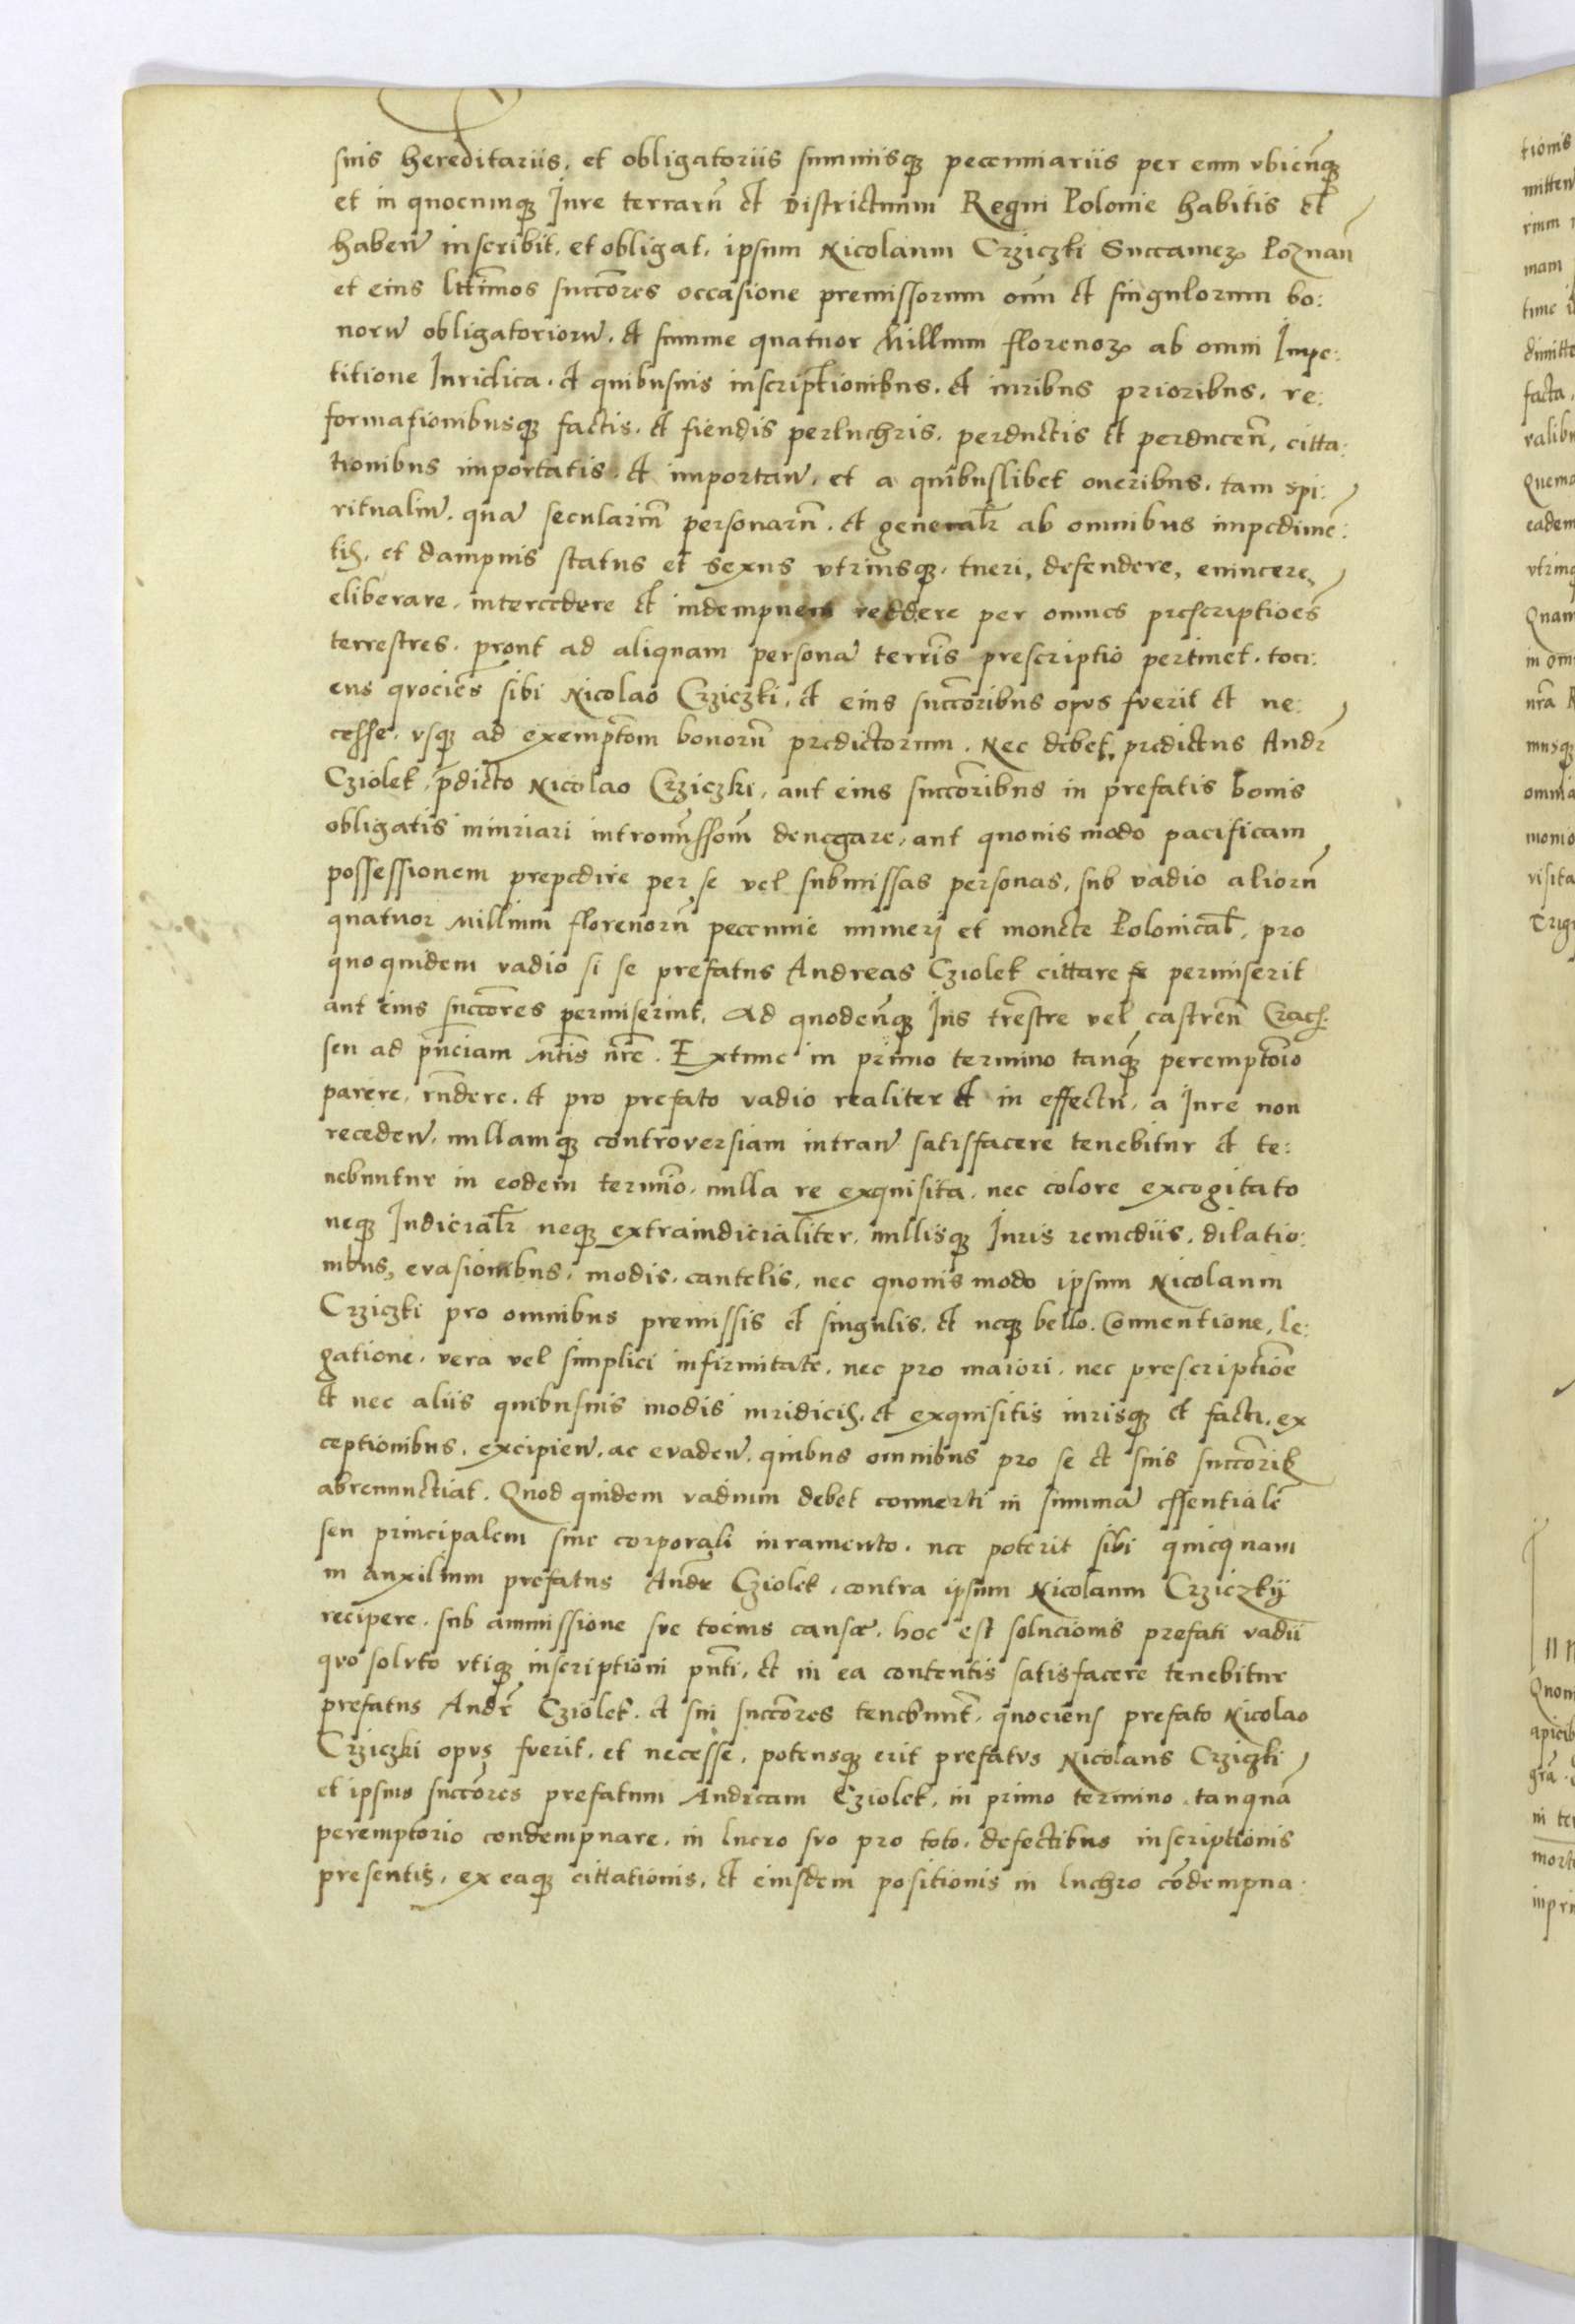 suis hereditariis, et obligatoriis summisqꝫ pecunniariis per eum vbicūqꝫ
et in quocunqꝫ Jure terrarū et Districtuum Regni Polonie habitis et
haben̄ inscribit, et obligat, ipsum Nicolaum Crziczki Succameꝝ Poznan̄
et eius ltt̄imos succōres occasione premissorum om̄ et singulorum bo:
norum̄ obligatoriorum̄, et summe quatuor Millium florenoꝝ ab omni Impe:
titione Iuridica, et quibusuis inscriptionibus, et iuribus prioribus, re:
formationibusqꝫ factis, et fiendis perluchris, perductis et perducen̄, citta:
tionibus importatis, et importan̄, et a quibuslibet oneribus, tam spi:
ritualiū, qua secularium̄ personarū, et genera̅lr ab omnibus impedimē:
tis, et dampnis status et sexus vtriusqꝫ, tueri, defendere, euincere,
eliberare, intercedere et indempnem reddere per omnes prescriptioēs
terrestres, prout ad aliquam personā terrīs prescriptio pertinet, toci:
ens qvociēs sibi Nicolao Crziczki, et eius succōribus opvs fverit et ne:
cesse, vsqꝫ ad exemptōm bonorū predictorum. Nec debet, predictus Andr̄
Cziolek, p̄dicto Nicolao Crziczki, aut eius succōribus in prefatis bonis
obligatis iniuriari intromīssōm denegare, aut quouis modo pacificam
possessionem prepedire per se vel submissas personas, sub vadio aliorū
quatuor Millium florenorū peccunie numeri et monete Polonical̄, pro
quo quidem vadio si se prefatus Andreas Cziolek cittare permiserit
aut eius succōres permiserint, Ad quodcūqꝫ Jus trēstre vel castren̄ Crac.
seu ad pn̄ciam Mtīs nr̄e. Extunc in primo termino tanqꝫ peremptoīo
parere, rn̄dere, et pro prefato vadio realiter et in effectu, a Jure non
receden̄, nullamqꝫ controversiam intran̄ satisfacere tenebitur et te:
nebuntur in eodem termīo, nulla re exquisita, nec colore excogitato
neqꝫ Judicial̄r neqꝫ extraiudicialiter, nullisqꝫ Juris remediis, dilatio:
nibus, evasionibus, modis, cautelis, nec quouis modo ipsum Nicolaum
Crziczki pro omnibus premissis et singulis, et neqꝫ bello, Conuentione, le:
gatione, vera vel simplici infirmitate, nec pro maiori, nec prescriptiōe
et nec aliis quibusuis modis iuridicis, et exquisitis iurisqꝫ et facti, ex
ceptionibus, excipien̄, ac evaden̄, quibus omnibus pro se et suis succōribꝫ
abrenunctiat. Quod quidem vadium debet conuerti in summā essentialē
seu principalem sine corporali iuramento, nec poterit sibi quicquam
in auxilium prefatus Andr̄ Cziolek, contra ipsum Nicolaum Crziczkij
recipere, sub ammissione sve tocius cause, hoc est solucionis prefati vadii
qvo solvto vtiqꝫ inscriptioni pn̄ti, et in ea contentis satisfacere tenebitur
prefatus Andr̄ Cziolek, et sui succōres tenebunt̄, quociens prefato Nicolao
Crziczki opvs fverit, et necesse, potensqꝫ erit prefatvs Nicolaus Crziczki
et ipsius succōres prefatum Andream Cziolek, in primo termino, tanquā
peremptorio condempnare, in lucro svo pro toto, defectibus inscriptionis
presentis, ex eaqꝫ cittationis, et eiusdem positionis in luchro cōdempna: